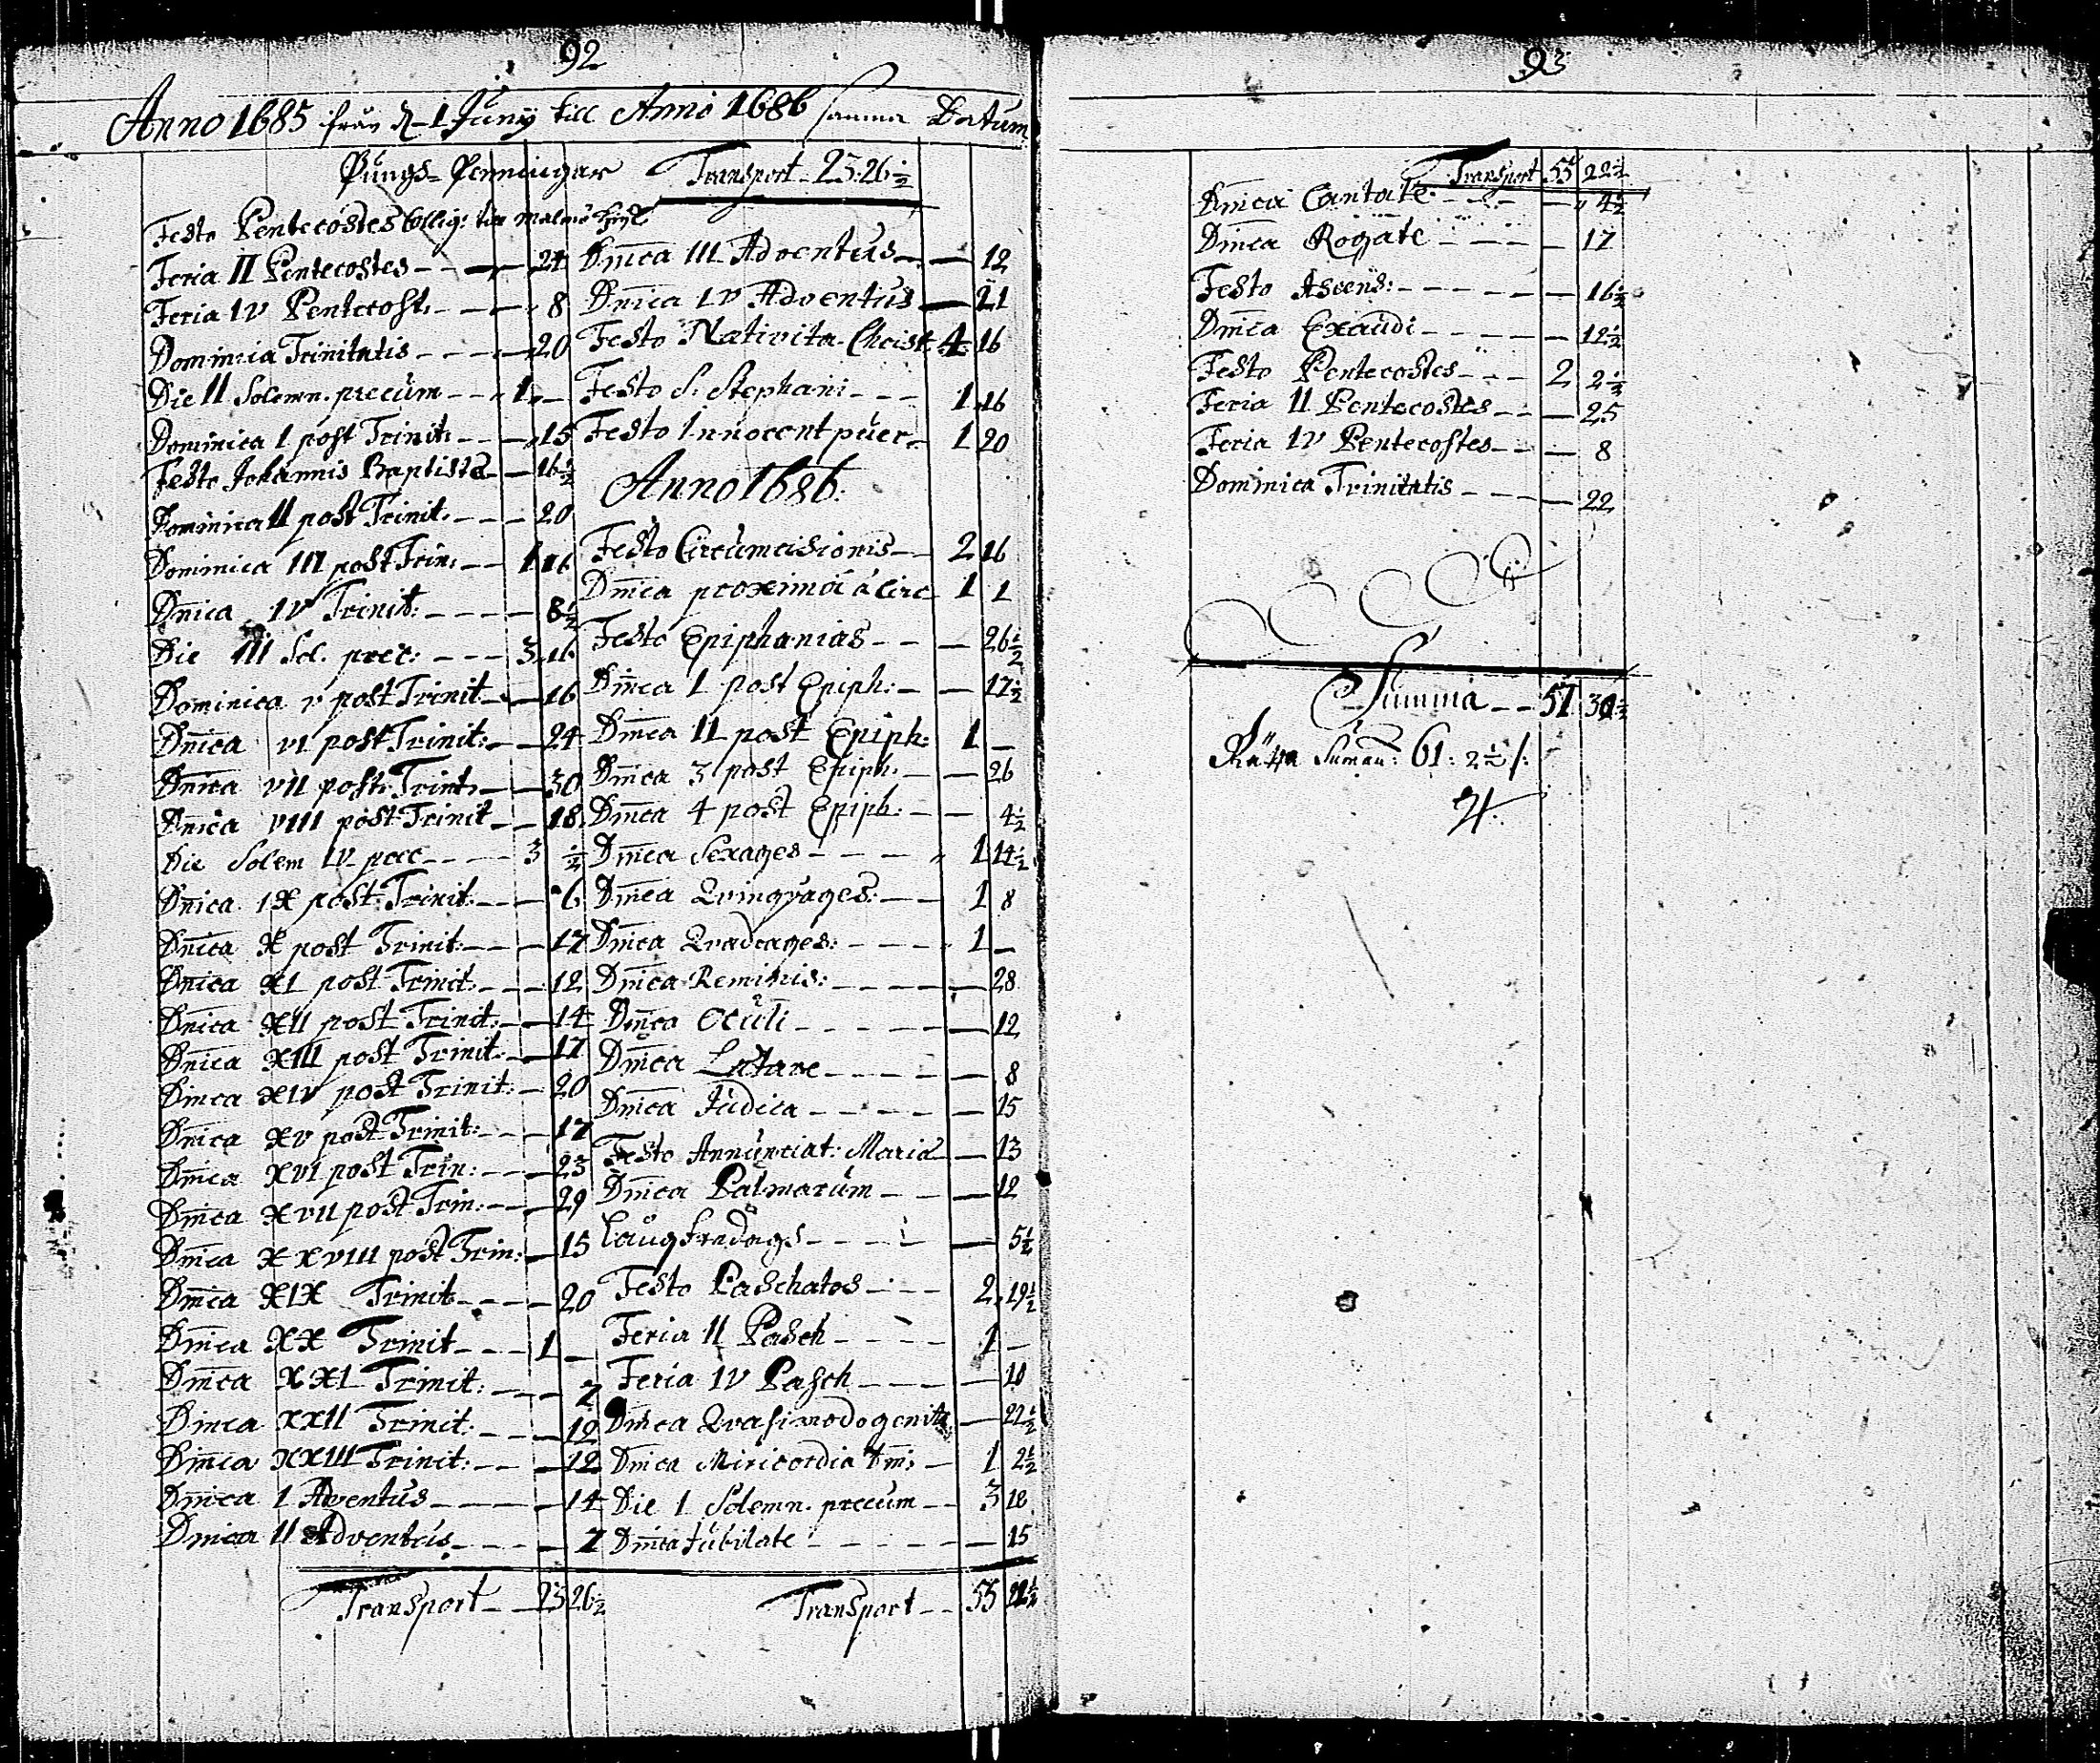 92
Anno 1685 från d. 1 Juny till Anno 1686 samma Datum
Pungs-Penningar
Festo Pentecostes Collig: till Malmö
Feria II Pentecostes - - - 24
Feria IV Pentecost. - - - 8
Dominica Trinitatis - - - - 20
Die II Solemn. precum - - - 1 -
Dominica I post Trinit: - - - 15
Festo Johannis Baptistæ - - 16½
Dominica II post Trinit. - - - - 20
Dominica III post Trin: - - 1 16
Dnica IV Trinit: - - - - 8½
Die III Sol. prec: - - - 3 16
Dominica V post Trinit - - 16
Dnica VI post Trinit: - - 24
Dnica VII post. Trinit. - - 30
Dnica VIII post Trinit - - 18
Die Solem IV prec - - - - 3 ½
Dnica IX post Trinit. - - - 6
Dnica X post Trinit: - - - 17
Dnica XI post Trinit. - - - 12
Dnica XII post Trinit. - - 14
Dnica XIII post Trinit. - - 17
Dnica XIV post Trinit: - 20
Dnica XV post Trinit: - - - 17
Dnica XVI post Trin: - - - 23
Dnica XVII post Trin: - - - 29
Dnica XXVIII post Trin: - 15
Dnica XIX Trinit - - - - 20
Dnica XX Trinit - - - 1 -
Dnica XXI Trinit: - - - 7
Dnica XXII Trinit: - - - 12
Dnica XXIII Trinit: - - - 12
Dnica I Adventus - - - - 14
Dnica II Adventus - - - - 7
Transport - - 23 26½
Transport - 23:26½
Dnica III Adventus - - 12
Dnica IV Adventus - 21
Festo Nativita. Christ. 4 16
Festo S. Stephani - - - 1 16
Festo Innocent puer - 1 20
Anno 1686:
Festo Circumcisionis - - 2 16
Dnica proxima à Circ 1 1
Festo Epiphanias - - - 26½
Dnica I post Epiph: - - 17½
Dnica II post Epiph: 1 -
Dnica 3 post Epiph. - - 26
Dnica 4 post Epiph: - - 4½
Dnica Sexages - - - 1 14½
Dnica Qvinqvages: - - 1 8
Dnica Qvadrages: - - - - 1 -
Dnica Reminis: - - - - - 28
Dnica Oculi - - - - - - 12
Dnica Lætare - - - - - 8
Dnica Judica - - - - - 15
Festo Annunciat: Mariæ - 13
Dnica Palmarum - - - 12
Långfredags - - - - 5½
Festo Paschatos - - - 2 19½
Feria II Pasch - - - - 1 -
Feria IV Pasch - - - - 10
Dnica Qvasimodogenit - 22½
Dnica Miricordia Dni: - 1 2½
Die I Solemn. precum - - 3 18
Dnica Jubilate - - - - - - 15
Transport - - 55 22½
93
Transport 55 22½
Dnica Cantate - - - - 4½
Dnica Rogate - - - - 17
Festo Ascens: - - - - - - 16½
Dnica Exaudi - - - - - 12½
Festo Pentecostes - - - 2 2½
Feria II Pentecostes - - - 25
Feria IV Pentecostes - - - 8
Dominica Trinitatis - - - - 22
Summa - - 57 30½
Rätta Sumañ: 61: 2½ /: